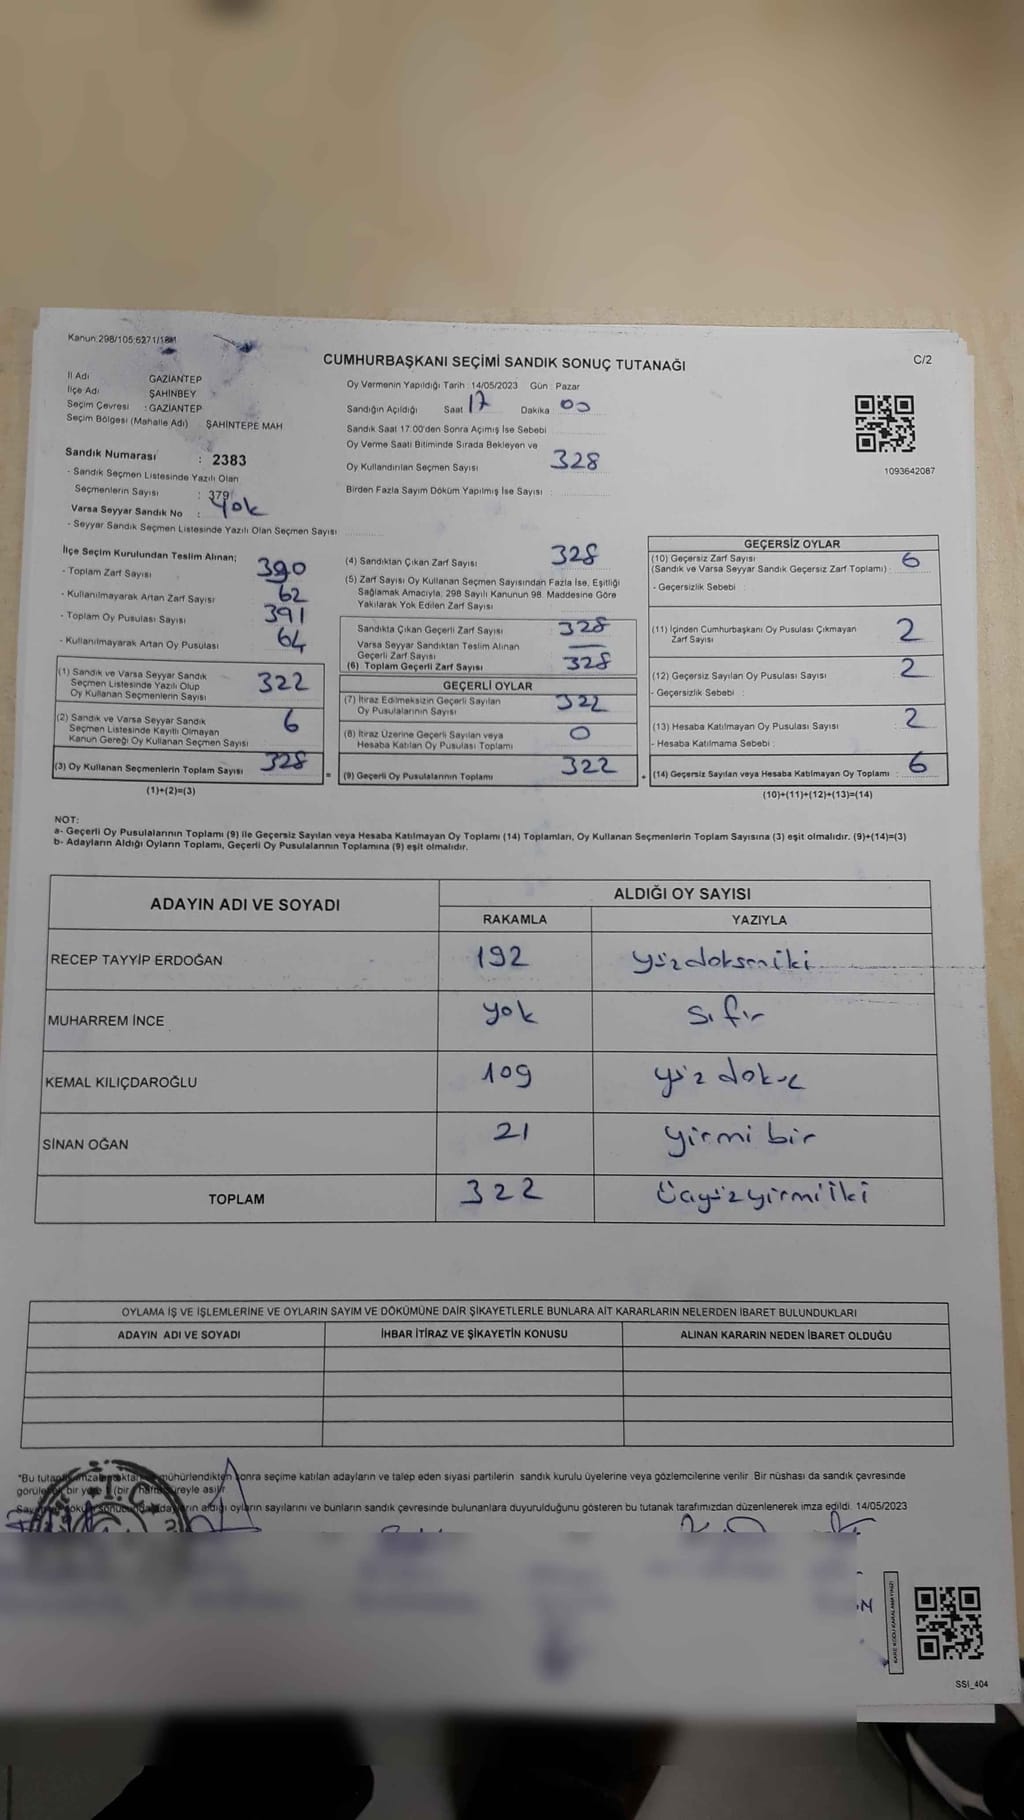 Kanun:298/105;6271/18
CUMHURBAŞKANI SEÇİMİ SANDIK SONUÇ TUTANAĞI
C/2
İl Adı GAZİANTEP
İlçe Adı ŞAHİNBEY
Seçim Çevresi : GAZİANTEP
Seçim Bölgesi (Mahalle Adı) ŞAHİNTEPE MAH
Oy Vermenin Yapıldığı Tarih : 14/05/2023 Gün : Pazar
Sandığın Açıldığı Saat 17 Dakika 00
Sandık Saat 17:00'den Sonra Açımış İse Sebebi
Oy Verme Saati Bitiminde Sırada Bekleyen ve
Oy Kullandırılan Seçmen Sayısı 328
Birden Fazla Sayım Döküm Yapılmış İse Sayısı :
1093642087
Sandık Numarası : 2383
- Sandık Seçmen Listesinde Yazılı Olan
Seçmenlerin Sayısı : 379
Varsa Seyyar Sandık No : Yok
- Seyyar Sandık Seçmen Listesinde Yazılı Olan Seçmen Sayısı
İlçe Seçim Kurulundan Teslim Alınan;
- Toplam Zarf Sayısı 390
- Kullanılmayarak Artan Zarf Sayısı 62
- Toplam Oy Pusulası Sayısı 391
- Kullanılmayarak Artan Oy Pusulası 64
(1) Sandık ve Varsa Seyyar Sandık
Seçmen Listesinde Yazılı Olup
Oy Kullanan Seçmenlerin Sayısı 322
(2) Sandık ve Varsa Seyyar Sandık
Seçmen Listesinde Kayıtlı Olmayan
Kanun Gereği Oy Kullanan Seçmen Sayısı 6
(3) Oy Kullanan Seçmenlerin Toplam Sayısı 328
(1)+(2)=(3)
(4) Sandıktan Çıkan Zarf Sayısı 328
(5) Zarf Sayısı Oy Kullanan Seçmen Sayısından Fazla İse, Eşitliği
Sağlamak Amacıyla, 298 Sayılı Kanunun 98. Maddesine Göre
Yakılarak Yok Edilen Zarf Sayısı
Sandıkta Çıkan Geçerli Zarf Sayısı 328
Varsa Seyyar Sandıktan Teslim Alınan
Geçerli Zarf Sayısı —
(6) Toplam Geçerli Zarf Sayısı 328
GEÇERLİ OYLAR
(7) İtiraz Edilmeksizin Geçerli Sayılan
Oy Pusulalarının Sayısı 322
(8) İtiraz Üzerine Geçerli Sayılan veya
Hesaba Katılan Oy Pusulası Toplamı 0
= (9) Geçerli Oy Pusulalarının Toplamı 322
GEÇERSİZ OYLAR
(10) Geçersiz Zarf Sayısı
(Sandık ve Varsa Seyyar Sandık Geçersiz Zarf Toplamı) : 6
- Geçersizlik Sebebi :
(11) İçinden Cumhurbaşkanı Oy Pusulası Çıkmayan
Zarf Sayısı 2
(12) Geçersiz Sayılan Oy Pusulası Sayısı 2
- Geçersizlik Sebebi :
(13) Hesaba Katılmayan Oy Pusulası Sayısı 2
- Hesaba Katılmama Sebebi :
+ (14) Geçersiz Sayılan veya Hesaba Katılmayan Oy Toplamı : 6
(10)+(11)+(12)+(13)=(14)
NOT:
a- Geçerli Oy Pusulalarının Toplamı (9) ile Geçersiz Sayılan veya Hesaba Katılmayan Oy Toplamı (14) Toplamları, Oy Kullanan Seçmenlerin Toplam Sayısına (3) eşit olmalıdır. (9)+(14)=(3)
b- Adayların Aldığı Oyların Toplamı, Geçerli Oy Pusulalarının Toplamına (9) eşit olmalıdır.
ADAYIN ADI VE SOYADI ALDIĞI OY SAYISI
RAKAMLA YAZIYLA
RECEP TAYYİP ERDOĞAN 192 yüzdoksaniki
MUHARREM İNCE yok sıfır
KEMAL KILIÇDAROĞLU 109 yüz dokuz
SİNAN OĞAN 21 yirmi bir
TOPLAM 322 üçyüzyirmiiki
OYLAMA İŞ VE İŞLEMLERİNE VE OYLARIN SAYIM VE DÖKÜMÜNE DAİR ŞİKAYETLERLE BUNLARA AİT KARARLARIN NELERDEN İBARET BULUNDUKLARI
ADAYIN ADI VE SOYADI İHBAR İTİRAZ VE ŞİKAYETİN KONUSU ALINAN KARARIN NEDEN İBARET OLDUĞU
*Bu mühürlendikten sonra seçime katılan adayların ve talep eden siyasi partilerin sandık kurulu üyelerine veya gözlemcilerine verilir. Bir nüshası da sandık çevresinde
bir yere (bir) hafta süreyle asılır
aldığı oyların sayılarını ve bunların sandık çevresinde bulunanlara duyurulduğunu gösteren bu tutanak tarafımızdan düzenlenerek imza edildi. 14/05/2023
KARE KODU KARALAMAYINIZ!
SSI_404